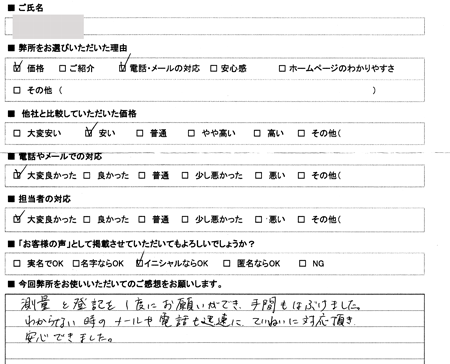 ■ ご氏名
■ 弊所をお選びいただいた理由
☑ 価格 □ご紹介 ☑ 電話・メールの対応 □ 安心感 □ ホームページのわかりやすさ
□ その他 ( )
■ 他社と比較していただいた価格
□ 大変安い ☑ 安い □ 普通 □ やや高い □ 高い □ その他(
■ 電話やメールでの対応
☑ 大変良かった □ 良かった □ 普通 □ 少し悪かった □ 悪い □ その他(
■ 担当者の対応
☑ 大変良かった □ 良かった □ 普通 □ 少し悪かった □ 悪い □ その他(
■ 「お客様の声」として掲載させていただいてもよろしいでしょうか?
□ 実名でOK □名字ならOK ☑イニシャルならOK □ 匿名ならOK □ NG
■ 今回弊所をお使いいただいてのご感想をお願いします。
測量と登記を1度にお願いができ、手間もはぶけました。
わからない時のメールや電話も迅速に、ていねいに対応頂き
安心できました。